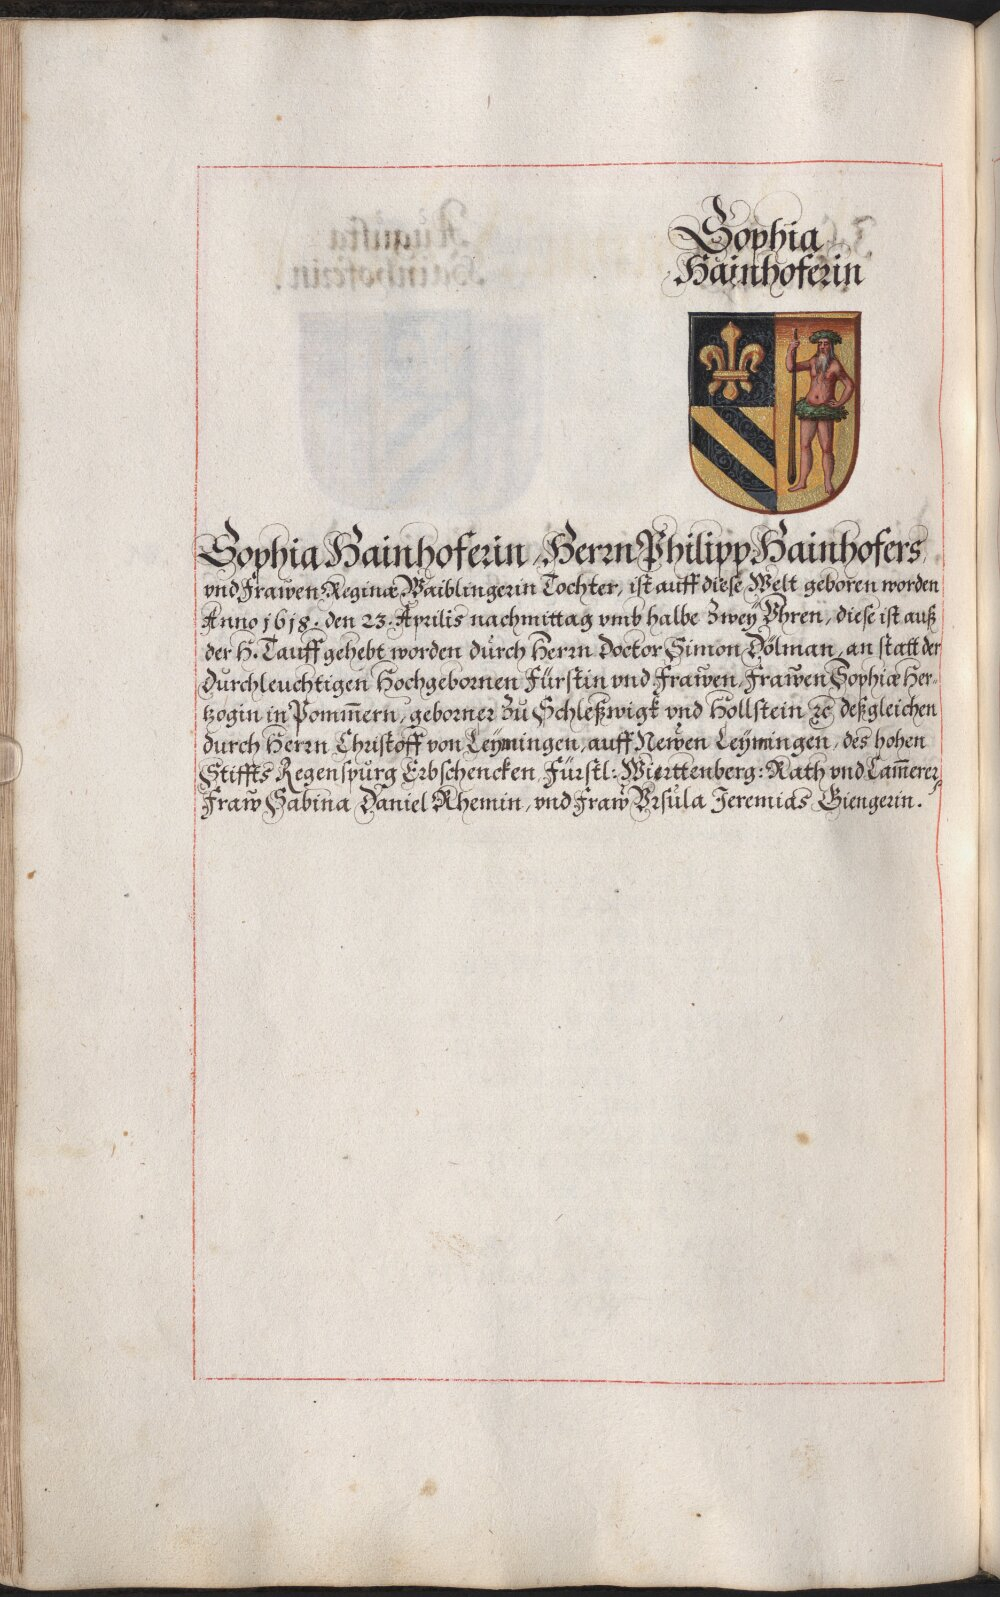 Sophia
Hainhoferin
Sophia Hainhoferin, Herrn Philipp Hainhofers,
vnd Frawen Reginæ Waiblingerin Tochter, ist auff diese Welt geboren worden
Anno 1618. den 23. Aprilis nachmittag vmb halbe Zwey Vhren, diese ist auß
der H. Tauff gehebt worden durch Herrn Doctor Simon Dölman, an statt der
Durchleuchtigen Hochgebornen Fürstin vnd Frawen, Frawen Sophiæ Her-
tzogin in Pom̄ern, geborner Zu Schleßwigk vnd Hollstein ꝛc deßgleichen
durch Herrn Christoff von Leÿmingen, auff Newen Leÿmingen, des hohen
Stiffts Regenspurg Erbschencken, Fürstl: Wierttenberg: Rath vnd Cam̄erer,
Fraw Sabina Daniel Rhemin, vnd Fraw Vrsula Jeremias Giengerin.